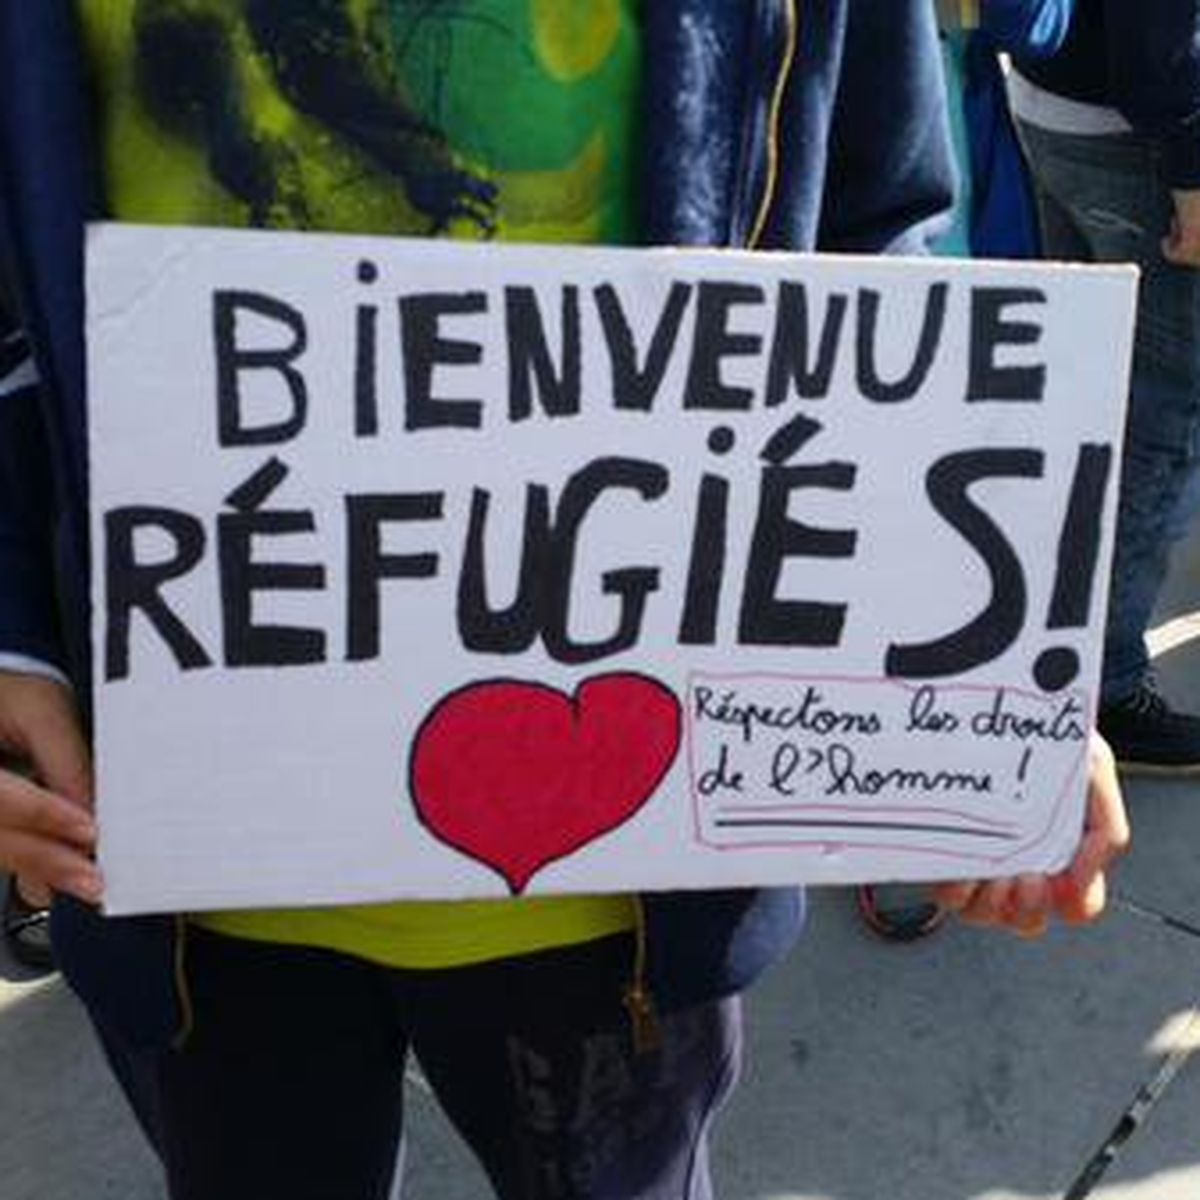 BiENVENUE
RÉFUGiÉS!
Réspectons les droits
de l'homme !